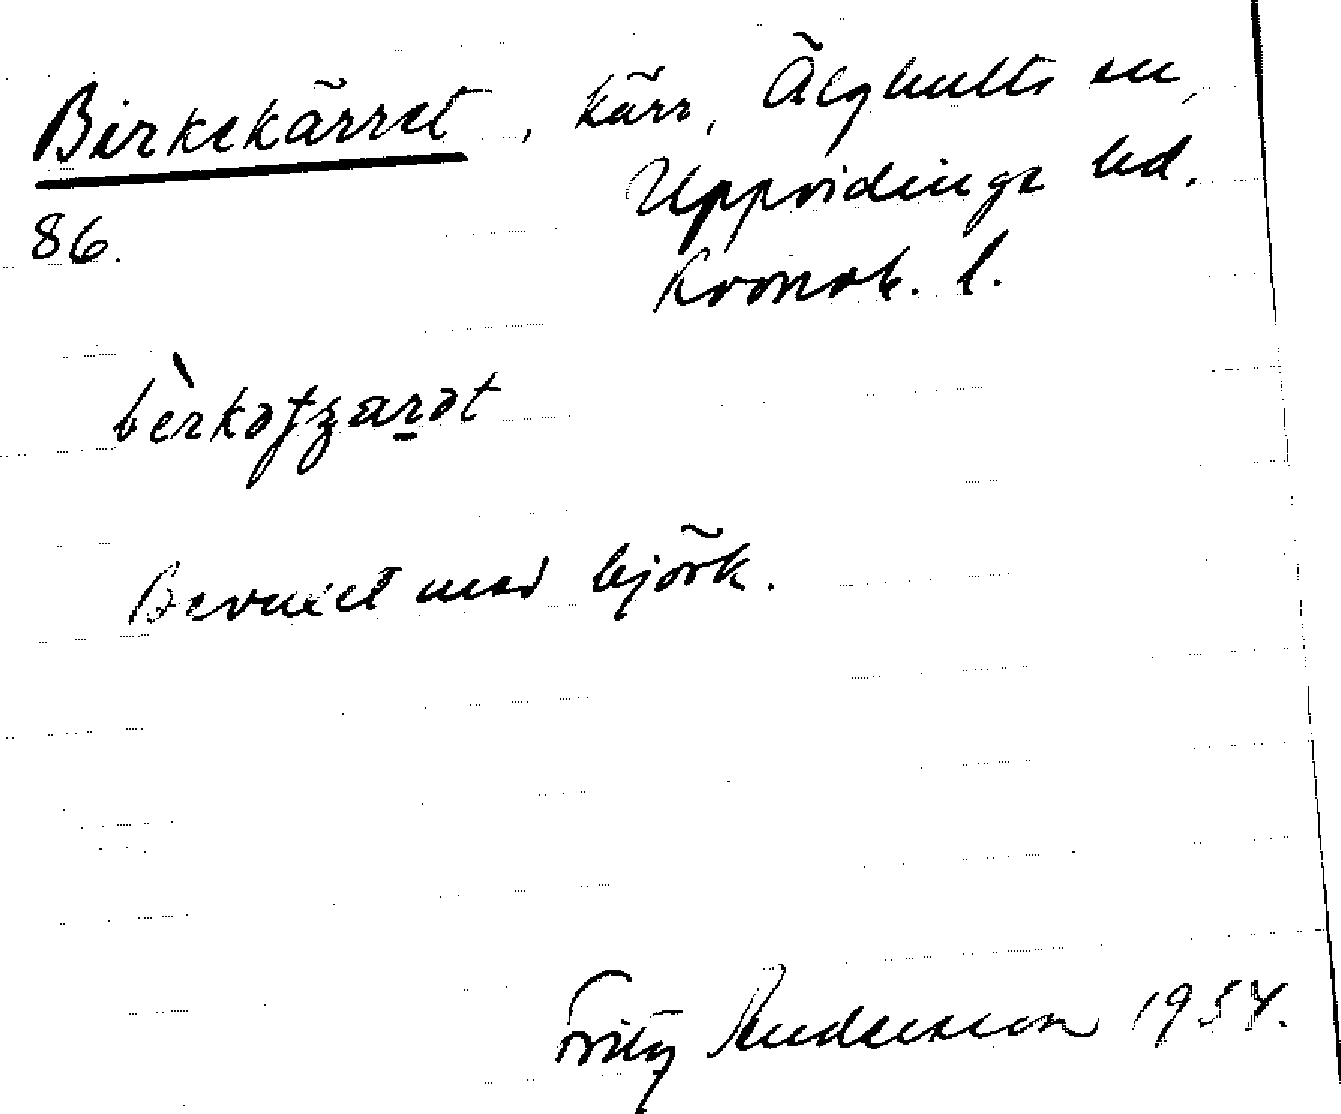 Birkekärret, kärr, Älghults sn,
Uppvidinge hd.
86.
Kronob. l.
Bevuxet med björk.
Fritz Andersson 1954.